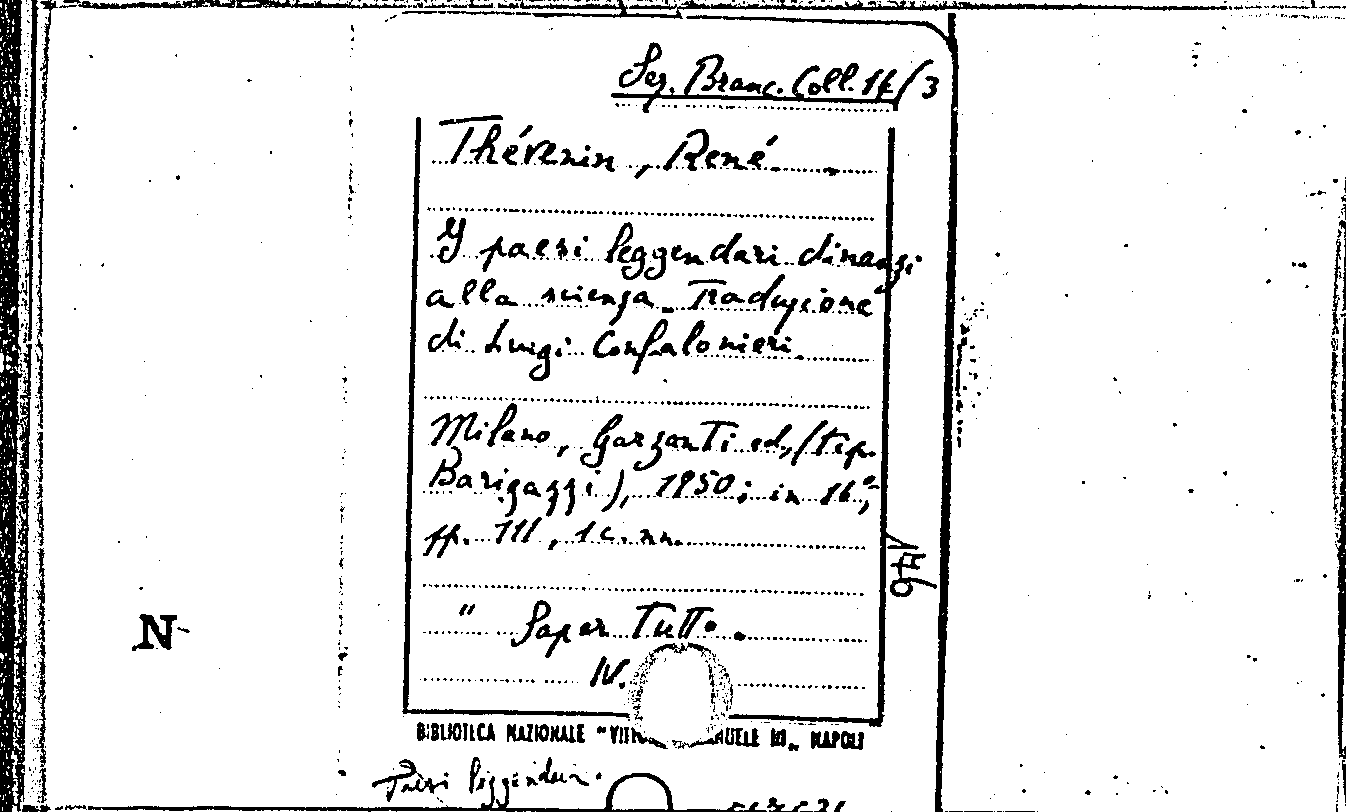 Sez. Branc. Coll. 17/3
Thévenin, René.
I paesi leggendari dinanzi
alla scienza. Traduzione
di Luigi Confalonieri.
Milano, Garzanti ed, (tip.
Barigazzi), 1950; in 16°,
pp. 111, 1 c. nn.
" Saper Tutto.
IV.
BIBLIOTECA NAZIONALE "VITT ANUELE III„ NAPOLI
Paesi leggendari.
N